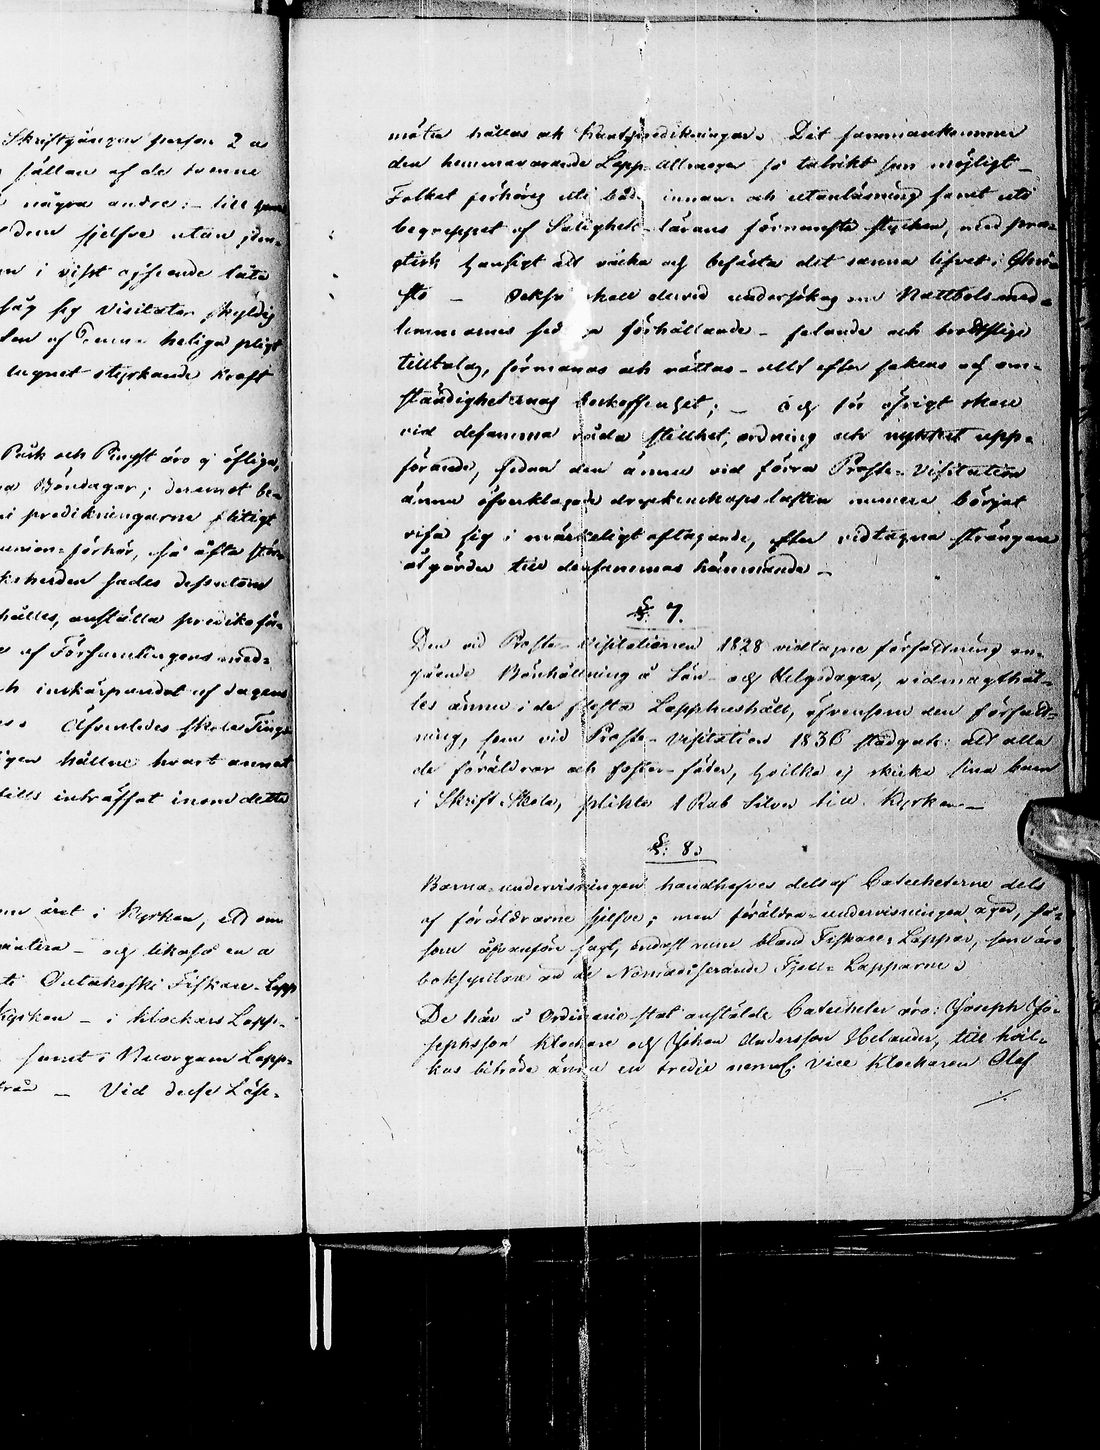 Skriftgången person 2 a
sällan af de tvenne
några andre: – till
dem sjelfve utan
i visst afseende låta
såg sig Visitator skyldig
heliga pligt
lugnet styrkande kraft
Påsk och Pingst äro ej öflige,
Böndagar; deremot be-
i predikningarne flitigt
förhör, så ofta
sades dessutom
hålles, anställa predikoför-
af Församlingens med-
inskärpandet af dagens
Äfvenledes skola Ting-
hållne hvart annat
tills inträffat inom detta
året i Kyrkan, ett om
och likaså en
Outakoski Fiskare-Lapp
Kyrkan – i Klockars Lapp-
samt i Nuorgam Lapp-
– Vid desse Läse-
möten hållas ock Predikningar. Dit sammankommer
den hemmavarande Lapp-Allmogen så talrikt som möjligt –
Folket förhöres uti både innan- och utanläsning samt uti
begreppet af Salighets-lärans förnämsta stycken, med prac-
tisk hänsigt att väcka och befästa det sanna lifvet i Chri-
sto – Också skall dervid undersökas om Nattbols med-
lemmarnes förhållande – felande och brottslige
tilltalas, förmanas och rättas – allt efter sakens och om-
ständigheternas beskaffenhet; – och för öfrigt skall
vid desamma råda stillhet, ordning och nyktert upp-
förande, sedan den ännu vid förra Proste-Visitation
ännu öfverklagade dryckenskaps lasten numera börjat
visa sig i märkeligt aftagande, efter vidtagna strängare
åtgärder till densammas hämmande –
§. 7.
Den vid Proste-Visitationen 1828 vidtagne författning an-
gående Bönhållning å Sön- och Helgedagar, vidmagthål-
les ännu i de flesta Lapphushåll, äfvensom den författ-
ning, som vid Proste-Visitation 1836 stadgats: att alla
de föräldrar och foster-fäder, hvilka ej skicka sina barn
i Skrift Skola, plikta 1 Rub Silver till Kyrkan –
§. 8.
Barna-undervisningen handhafves dels af Catecheterne dels
af föräldrarne sjelfve; men föräldra-undervisningen äger, så-
som ofvanföre sagt, endast rum bland Fiskare-Lappar, som äro
bofastare än de Nomadiserande Fjell-Lapparne.
De här å Ordinarie stat anstälde Catecheter äro: Joseph Jo-
sephsson Klockare och Johan Andersson Helander, till hvil-
kas biträde ännu en tredje neml. Vice Klockaren Olof
./.